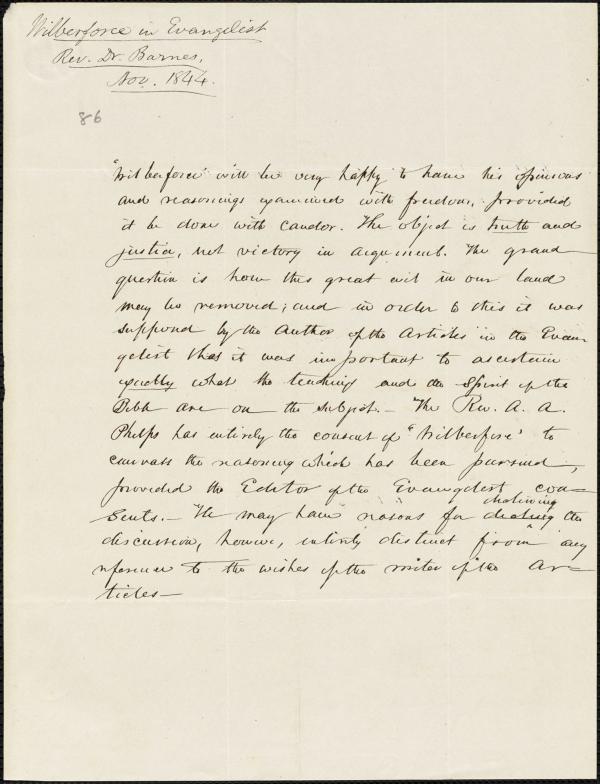 Wilberforce in Evangelist
Rev. Dr. Barnes,
Nov. 1844.
86
"Wilberforce" will be very happy to have his opinions
and reasonings examined with freedom, provided
it be done with candor. The object is truth and
justice, not victory in argument. The grand
question is how this great evil in our land
may be removed; and in order to this it was
supposed by the Author of the Articles in the Evan-
gelist that it was important to ascertain
exactly what the teaching and the Spirit of the
Bible are on the subject. - The Rev. A. A.
Phelps has entirely the consent of "Wilberforce" to
canvass the reasoning which has been pursued,
provided the Editor of the Evangelist con-
sents. - He may have reasons for declining the
discussion, however, entirely distinct from any
reference to the wishes of the writer of the Ar-
ticles -